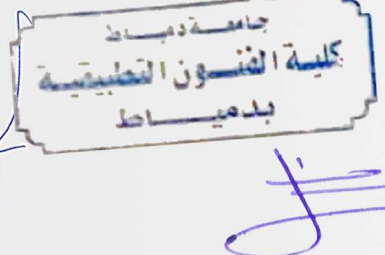 جامعة دمياط
كلية الفنون التطبيقية
بدمياط